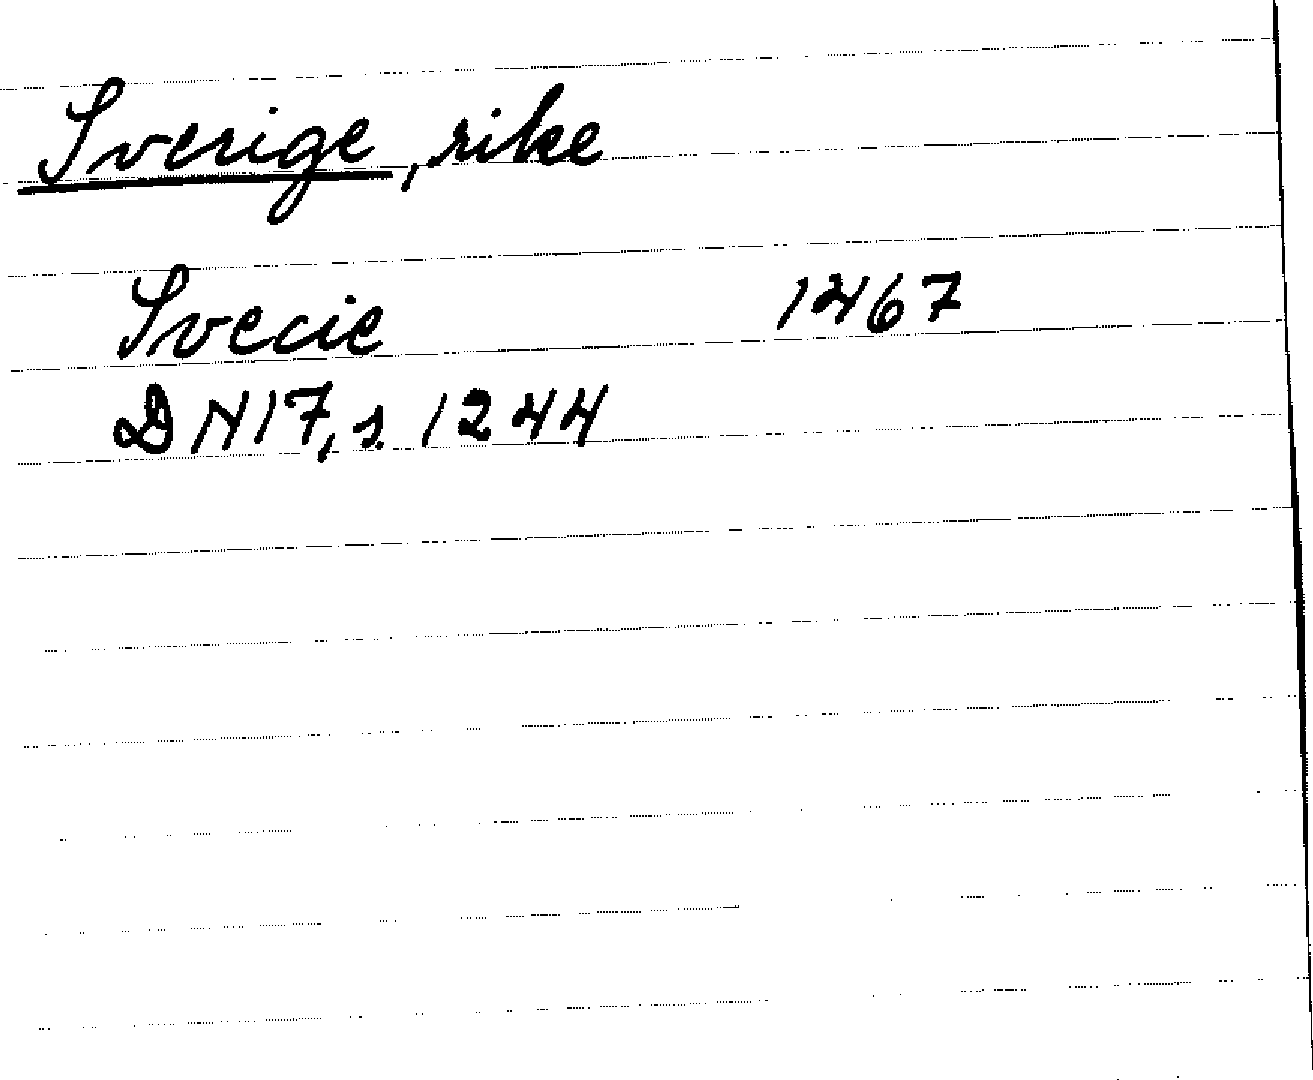 Sverige, rike
Svecie 1467
DN17, s. 1244